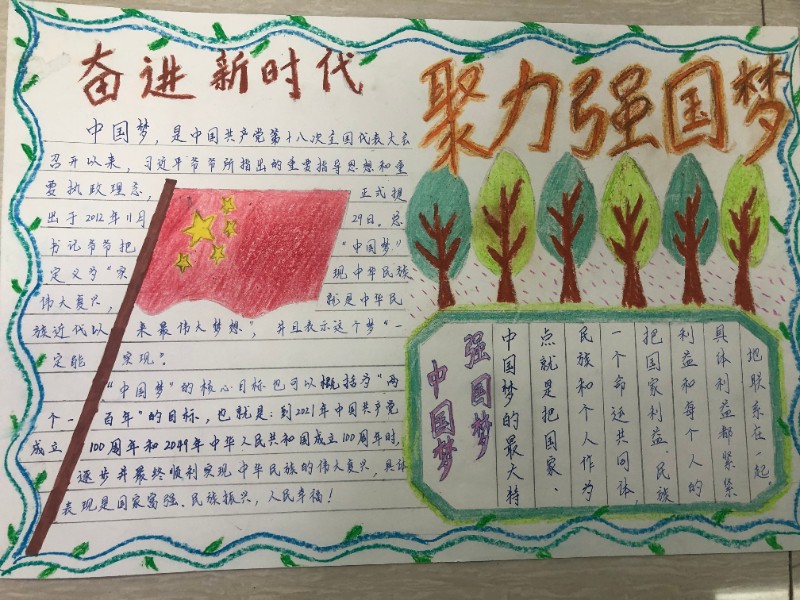 奋进新时代
聚力强国梦
中国梦，是中国共产党第十八次全国代表大会
召开以来，习近平爷爷所指出的重要指导思想和重
要执政理念，正式提
出于2012年11月29日。总
书记爷爷把“中国梦”
定义为“实现中华民族
伟大复兴，就是中华民
族近代以来最伟大梦想”，并且表示这个梦“一
定能实现”。
“中国梦”的核心目标也可以概括为“两
个一百年”的目标，也就是：到2021年中国共产党
成立100周年和2049年中华人民共和国成立100周年时，
逐步并最终顺利实现中华民族的伟大复兴，具体
表现是国家富强、民族振兴，人民幸福！
中国梦
强国梦
中国梦的最大特
点就是把国家、
民族和个人作为
一个命运共同体，
把国家利益、民族
利益和每个人的
具体利益都紧紧
地联系在一起。